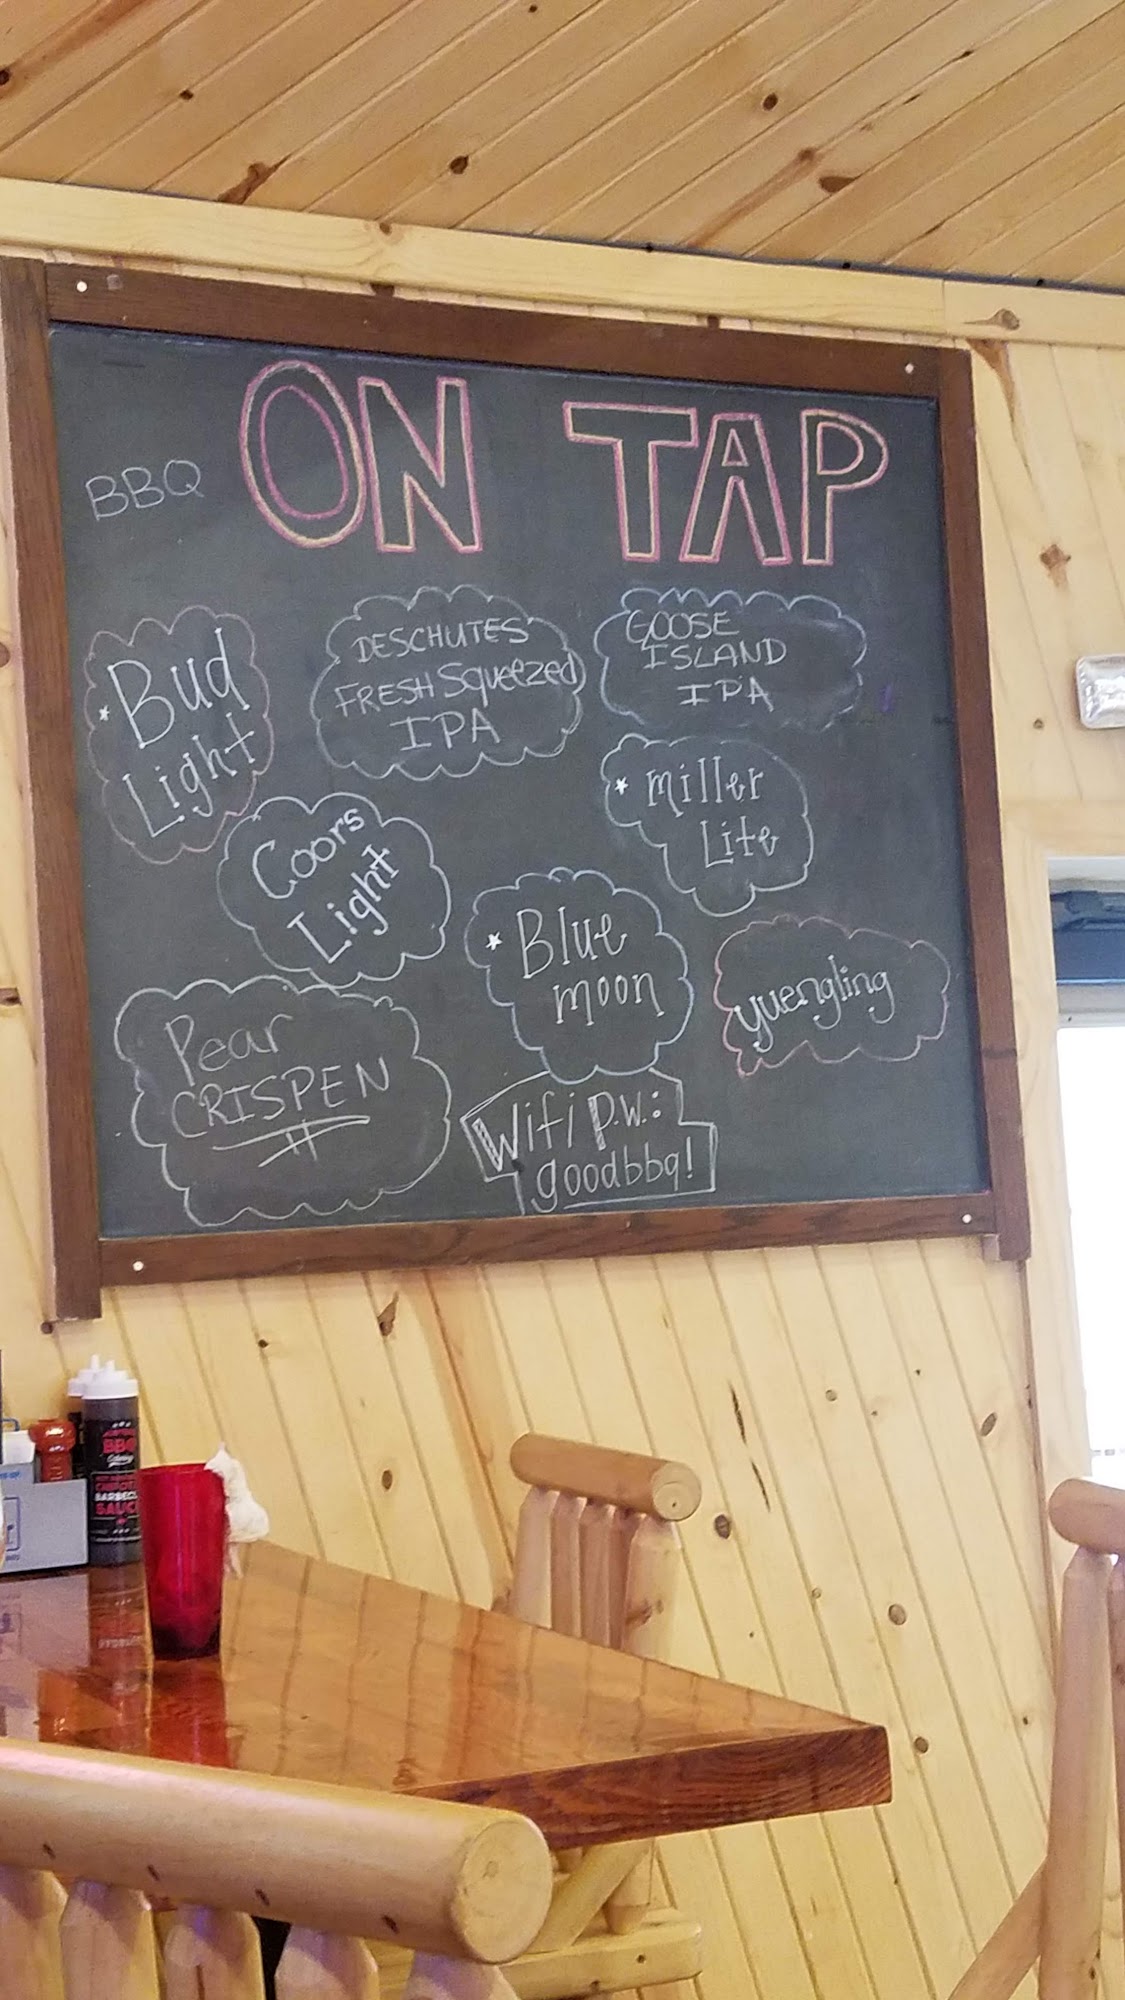 ON TAP
BBQ
Bud
Light
DESCHUTES
FRESH Squeezed
IPA
GOOSE
ISLAND
IPA
Coors
Light
Miller
Lite
Blue
moon
yuengling
Pear
CRISPEN
Wifi P.W.:
goodbbq!
BBQ
BARBECUE
SAUCE